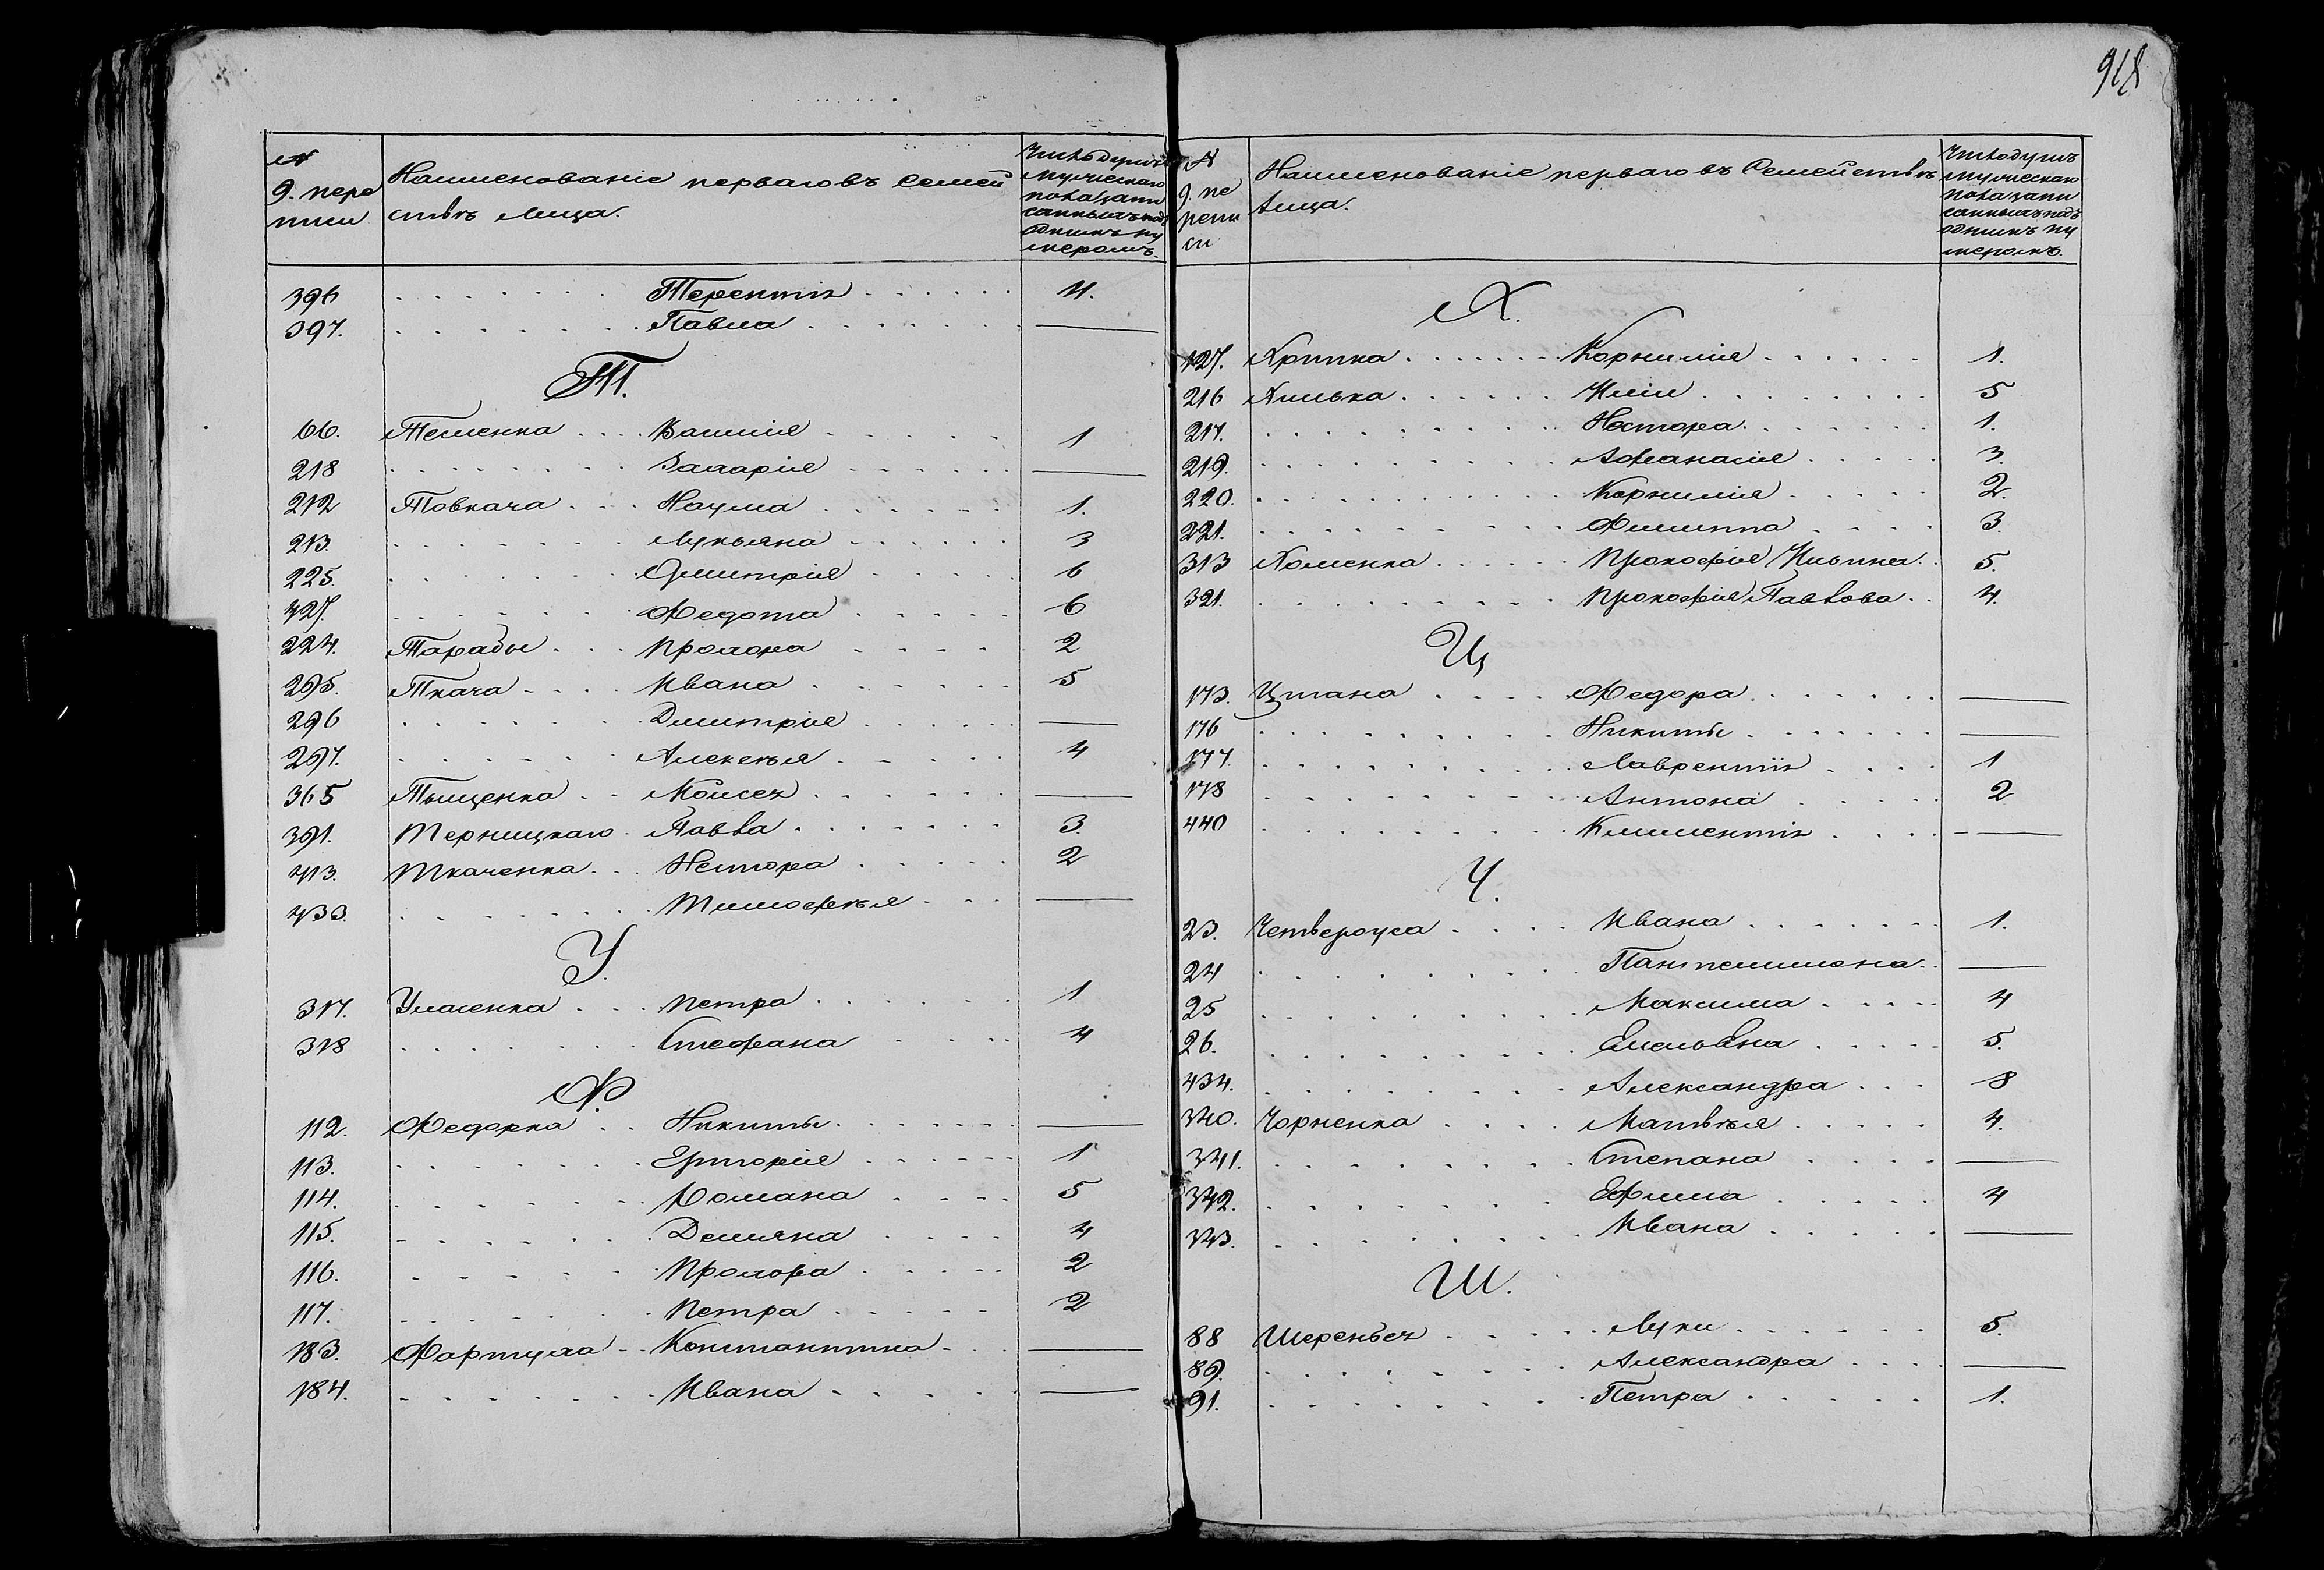 918
№ 9. пере писи
Наименованіе перваго въ Семей ствѣ Лица.
Число душъ мужескаго пола запи санныхъ подъ однимъ ну меромъ.
396 . . . . . . . Терентія . . . . . . 4.
397. . . . . . . . Павла . . . . . . . —
Т.
66. Теменка . . . Василія . . . . . . 1
218 . . . . . . . . Захарія . . . . . . —
212 Товкача . . . Наума . . . . . . 1.
213. . . . . . . . Лукьяна . . . . . . 3
225. . . . . . . . Димитрія . . . . . 6
427. . . . . . . . Федота . . . . . 6
224. Тарабы . . . Прохора . . . . 2
295. Ткача . . . . Ивана . . . . . . 5
296 . . . . . . . Дмитрія . . . . . —
297. . . . . . . Алексѣя . . . . . 4
365 Тыщенка . . Моисея . . . . . . —
391. Терницкаго . Павла . . . . . . . 3.
413. Ткаченка . . . Нестора . . . . . 2
433. . . . . . . . Тимофѣя . . . —
У.
317. Уманенка . . . Петра . . . . . . 1
318 . . . . . . . Стефана . . . . 4
Ф.
112. Федорка . . Никиты . . . . . . —
113. . . . . . . . Григорія . . . . . . 1
114. . . . . . . . Романа . . . . 5
115. . . . . . . . Демяна . . . . 4
116. . . . . . . Прохора . . . . . 2
117. . . . . . . . Петра . . . . . 2
183. Фартуха . . Константина . . —
184. . . . . . . . Ивана . . . . . —
№ 9. пе репи си
Наименованіе перваго въ Семействѣ Лица.
Число душъ мужескаго пола запи санныхъ подъ однимъ ну меромъ.
Х.
427. Хрипка . . . . . . . Корнилія . . . . . . 1.
216 Хилька . . . . . . Иліи . . . . . . . . . 5
217. . . . . . . . . . Нестора . . . . . . . 1.
219. . . . . . . . . . Афанасія . . . . . 3.
220. . . . . . . . . . Корнилія . . . . . 2.
221. . . . . . . . . . Филиппа . . . . 3.
313 Хоменка . . . . . . Прокофія Ильина . . 5.
321. . . . . . . . . . Прокофія Павлова . . 4.
Ц
173. Цмана . . . . Федора . . . . . . . —
176 . . . . . . . . . Никиты . . . . . . . —
177. . . . . . . . . . Лаврентія . . . . 1
178 . . . . . . . . . Антона . . . . . 2
440 . . . . . . . . . Климентія . . . . —
Ч.
23. Четвероуса . . . . Ивана . . . . . . . 1.
24 . . . . . . . . Пантелимона . . —
25 . . . . . . . . . Максима . . . . 4
26. . . . . . . . . . Емельяна . . . . . 5.
434. . . . . . . . . Александра . . . 8
340. Чорненка . . . . Матвѣя . . . . . 4.
341. . . . . . . . . . Степана . . . . —
342. . . . . . . . . Ефима . . . . . 4
343. . . . . . . . . Ивана . . . . . —
Ш.
88 . . . . . Луки . . . . . . 5.
89. . . . . . . . . Александра . . . . —
91. . . . . . . . . Петра . . . . . 1.